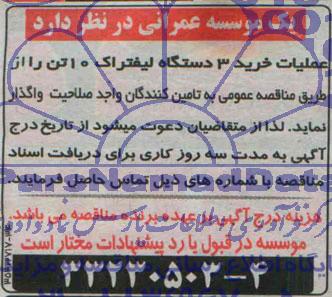 یک موسسه عمرانی در نظر دارد
عملیات خرید ۳ دستگاه لیفتراک ۱۰ تن را از
طریق مناقصه عمومی به تامین کنندگان واجد صلاحیت واگذار
نماید. لذا از متقاضیان دعوت میشود از تاریخ درج
آگهی به مدت سه روز کاری برای دریافت اسناد
مناقصه با شماره های ذیل تماس حاصل فرمایند.
هزینه درج آگهی بر عهده برنده مناقصه می باشد.
موسسه در قبول یا رد پیشنهادات مختار است
۳۳۲۳۰۵۰۲-۴